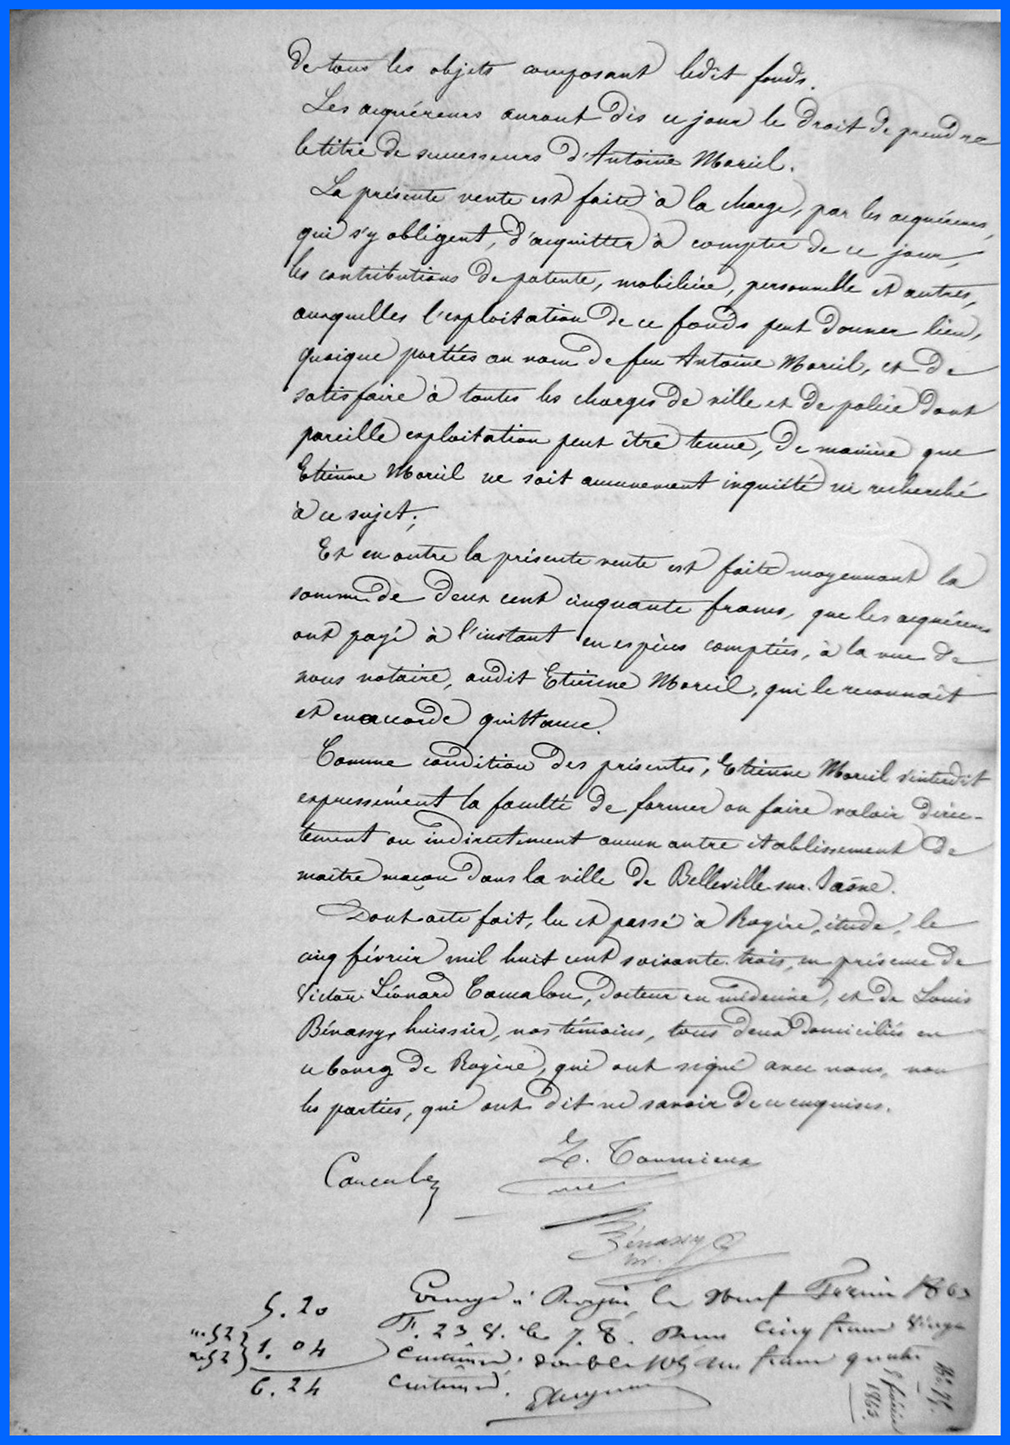 de tous les objets composant ledit fonds.
Les acquéreurs auront dès ce jour le droit de prendre
le titre de successeurs d'Antoine Moreil.
La présente vente est faite à la charge, par les acquéreurs,
qui s'y obligent, d'acquitter à compter de ce jour,
les contributions de patente, mobilière, personnelle et autres,
auxquelles l'exploitation de ce fonds peut donner lieu,
quoique portées au nom de feu Antoine Moreil, et de
satisfaire à toutes les charges de ville et de police dont
pareille exploitation peut être tenue, de manière que
Etienne Moreil ne soit aucunement inquiété ni recherché
à ce sujet;
Et en outre la présente vente est faite moyennant la
somme de deux cent cinquante francs, que les acquéreurs
ont payé à l'instant en espèces comptées, à la vue de
nous notaire, audit Etienne Moreil, qui le reconnaît
et en accorde quittance.
Comme condition des présentes, Etienne Moreil s'interdit
expressément la faculté de former ou faire valoir direc-
tement ou indirectement aucun autre établissement de
maître maçon dans la ville de Belleville-sur-Saône.
Dont acte fait, lu et passé à Royère, étude, le
cinq février mil huit cent soixante-trois, en présence de
Victor Léonard Cancalon, Docteur en médecine, et de Louis
Bénassy, huissier, nos témoins, tous deux domiciliés en
ce bourg de Royère, qui ont signé avec nous, non
les parties, qui ont dit ne savoir de ce enquises.
Z. Toumieux
Bénassy
5.20
1.04
6.24
à Royère, le neuf Février 1863
F. 23 V. C. 7. 8. Reçu cinq francs vingt
centimes, double un franc quatre
centimes.
5 février
1863.